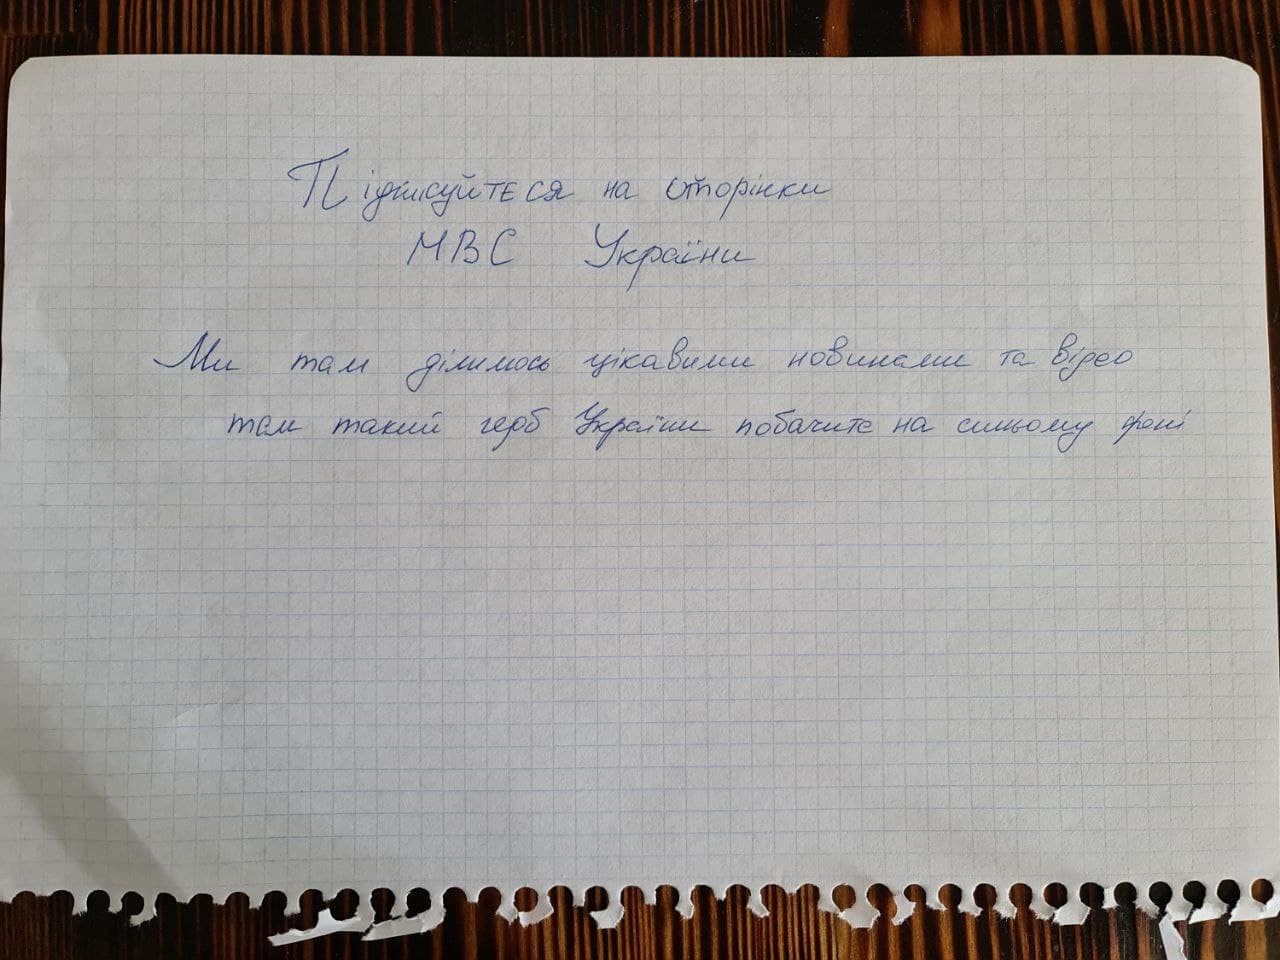 Підписуйтеся на сторінки
МВС України
Ми там ділимось цікавими новинами та відео
там такий герб України побачите на синьому фоні